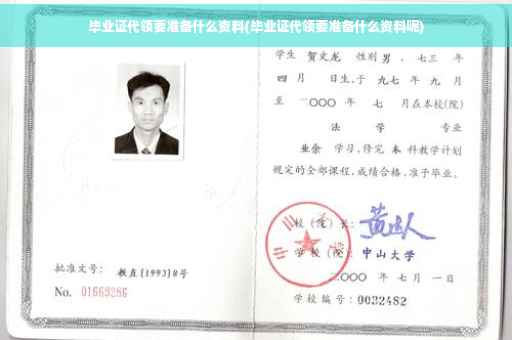 毕业证代领要准备什么资料(毕业证代领要准备什么资料呢)
学生 贺文龙 性别 男 、七三 年
四 月 日生,于 九七 年 九 月
至 二〇〇〇 年 七 月在本校(院)
法 学 专业
业余 学习,修完 本 科教学计划
规定的全部课程,成绩合格,准予毕业。
校(院)长:
学 校(院): 中山大学
二〇〇〇 年 七 月 一 日
学校编号:0032482
批准文号: 教直[1993]8号
No. 01669286